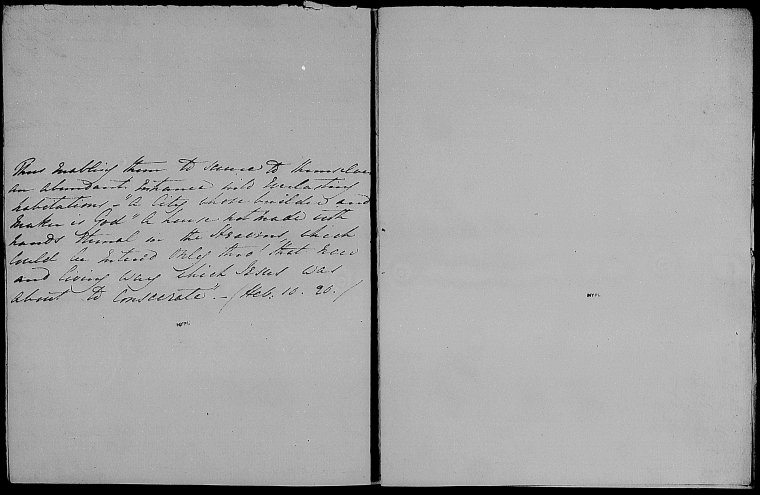 Thus enabling them to secure to themselves
an abundant entrance into Everlasting
habitations - "A City whose builder and
maker is God" A house not made with
hands eternal in the Heavens, which
could be entered only thro' that new
and living way which Jesus was
about to consecrate". - (Heb. 10. 20.)